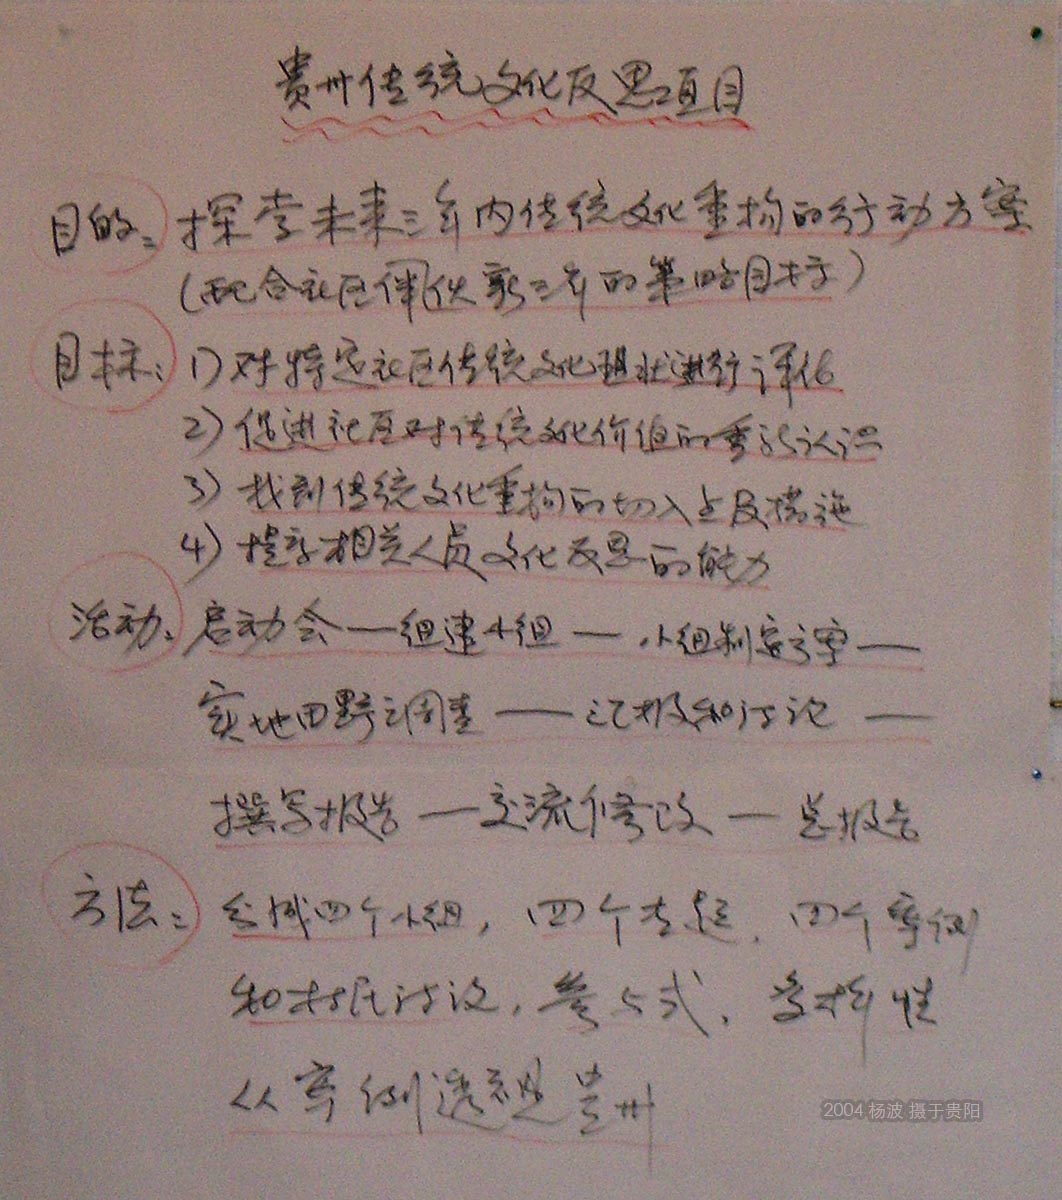 贵州传统文化反思项目
目的：探索未来三年内传统文化重构的行动方案
（配合社区伙伴新三年的策略目标）
目标：1）对特定社区传统文化现状进行评估
2）促进社区对传统文化价值的重新认识
3）找到传统文化重构的切入点及措施
4）提高相关人员文化反思的能力
活动：启动会—组建小组—小组制定方案—
实地田野调查——汇报和讨论——
撰写报告—交流修改—总报告
方法：分成四个小组，四个专题，四个案例
和村民讨论，参与式，多样性
从案例透视贵州
2004 杨波 摄于贵阳